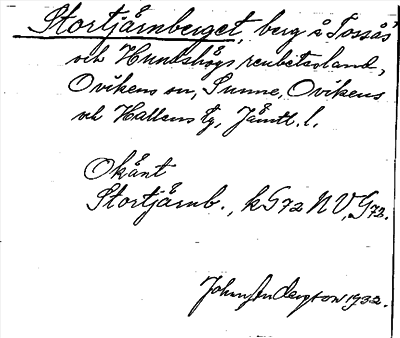 Stortjärnberget, berg å Tossås'
och Hundshögs renbetesland,
Ovikens sn, Sunne, Ovikens
och Hallens tg, Jämtl. l.
Okänt
Stortjärnb., k G72 NV, G73.
John Anderzson 1932.